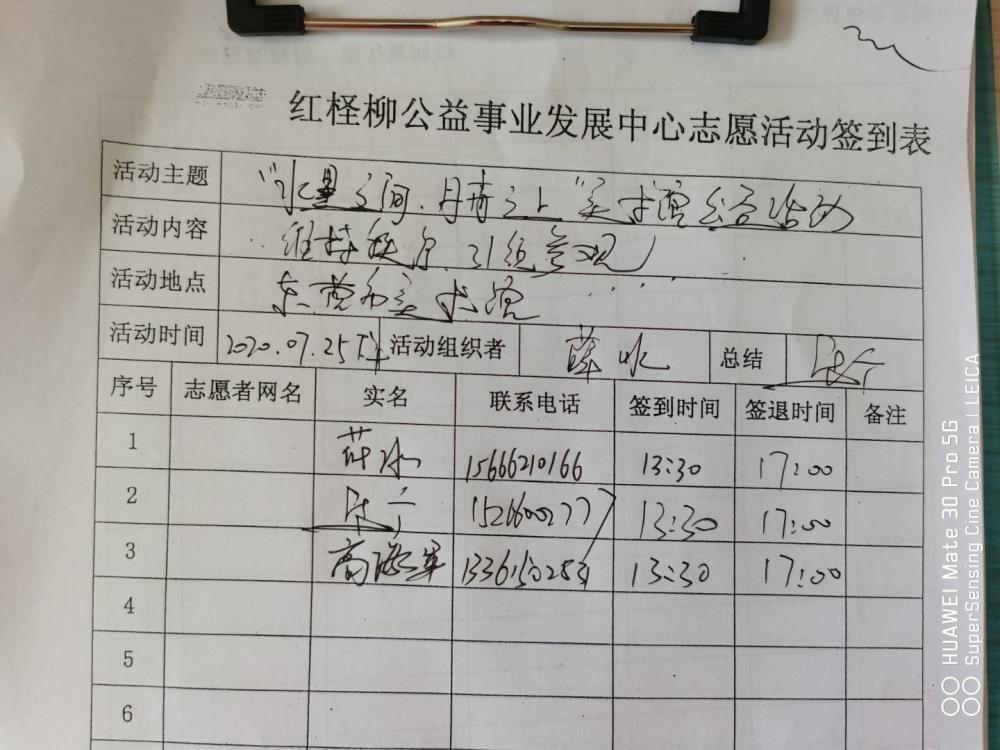 红柽柳公益事业发展中心志愿活动签到表
活动主题 之间 美术馆公益活动
活动内容 维持秩序 引领参观
活动地点 东营市美术馆
活动时间 2020.07.25下午 活动组织者 薛冰 总结
序号 志愿者网名 实名 联系电话 签到时间 签退时间 备注
1 薛冰 15666210166 13:30 17:00
2 13:30 17:00
3 高海军 13:30 17:00
4
5
6
HUAWEI Mate 30 Pro 5G
SuperSensing Cine Camera | LEICA